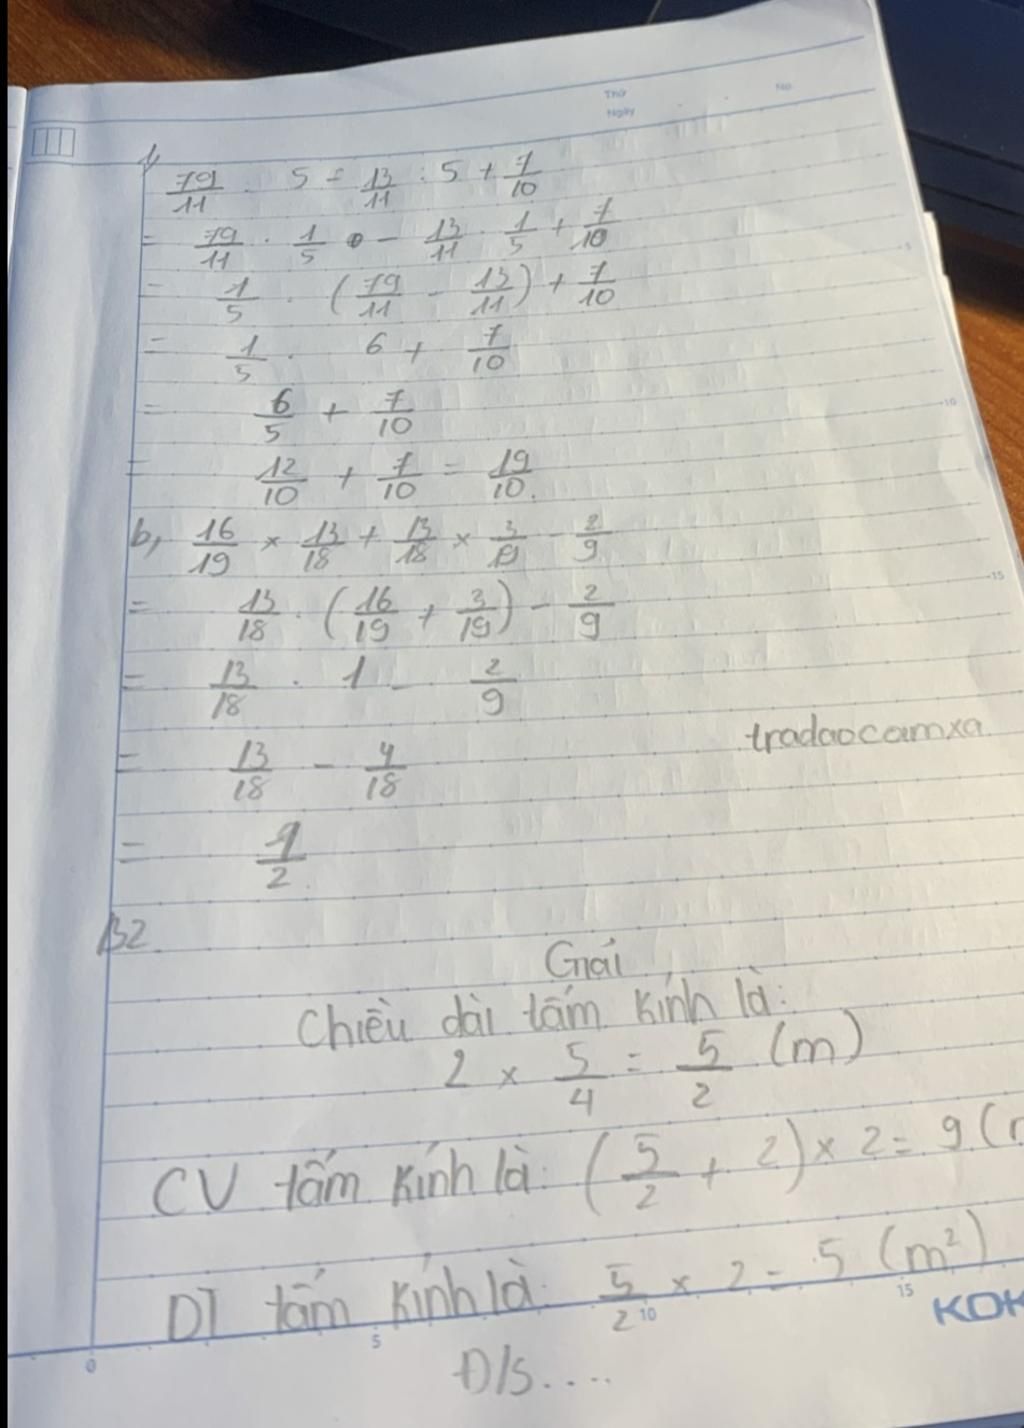 Thứ
Ngày
No.
1,
79/11 : 5 - 13/11 : 5 + 7/10
= 79/11 . 1/5 - 13/11 . 1/5 + 7/10
= 1/5 . (79/11 - 13/11) + 7/10
= 1/5 . 6 + 7/10
= 6/5 + 7/10
= 12/10 + 7/10 = 19/10.
b, 16/19 × 13/18 + 13/18 × 3/19 - 2/9
= 13/18 . (16/19 + 3/19) - 2/9
= 13/18 . 1 - 2/9
tradaocamxa.
= 13/18 - 4/18
= 1/2.
B2
Giải
Chiều dài tấm kính là:
2 × 5/4 = 5/2 (m)
CV tấm kính là: (5/2 + 2) × 2 = 9 (
DT tấm kính là: 5/2 × 2 = 5 (m²)
Đ/S....
0 5 10 15
KOK
5
10
15